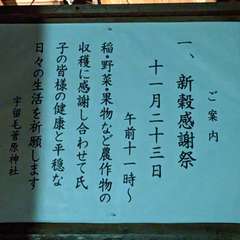 ご案内
一、新穀感謝祭
十一月二十三日
午前十一時〜
稲・野菜・果物など農作物の
収穫に感謝し合わせて氏
子の皆様の健康と平穏な
日々の生活を祈願します
宇留毛菅原神社